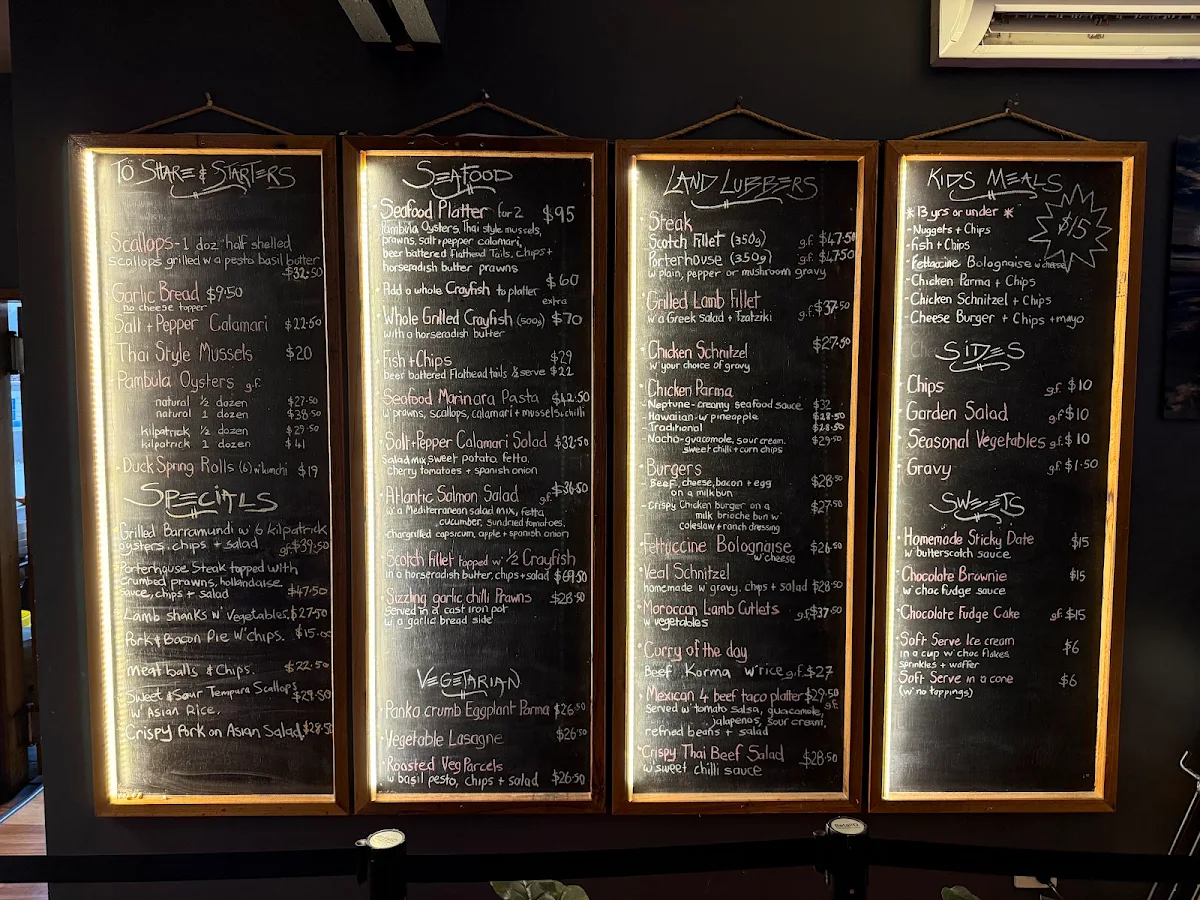 TO SHARE & STARTERS
Scallops - 1 doz half shelled
scallops grilled w a pesto basil butter
$32.50
Garlic Bread $9.50
no cheese topper
Salt + Pepper Calamari $22.50
Thai Style Mussels $20
Pambula Oysters g.f.
natural ½ dozen $27.50
natural 1 dozen $38.50
kilpatrick ½ dozen $29.50
kilpatrick 1 dozen $41
Duck Spring Rolls (6) w' kimchi $19
SPECIALS
Grilled Barramundi w' 6 kilpatrick
oysters, chips + salad g.f. $39.50
Porterhouse Steak topped with
crumbed prawns, hollandaise
sauce, chips + salad $47.50
Lamb shanks N' Vegetables. $27.50
Pork & Bacon Pie W' chips. $15.00
meatballs & Chips. $22.50
Sweet & Sour Tempura Scallops $29.50
w' Asian Rice.
Crispy Pork on Asian Salad $28.50
SEAFOOD
Seafood Platter for 2 $95
Pambula Oysters, Thai style mussels,
prawns, salt + pepper calamari,
beer battered Flathead Tails, Chips +
horseradish butter prawns
- Add a whole Crayfish to platter $60
extra
Whole Grilled Crayfish (500g) $70
with a horseradish butter
Fish + Chips $29
beer battered Flathead tails ½ serve $22
Seafood Marinara Pasta $42.50
w' prawns, scallops, calamari + mussels + chilli
Salt + Pepper Calamari Salad $32.50
Salad mix, sweet potato, fetta,
cherry tomatoes + spanish onion
Atlantic Salmon Salad g.f. $36.50
w' a Mediterranean salad mix, fetta,
cucumber, sundried tomatoes,
chargrilled capsicum, apple + spanish onion
Scotch fillet topped w' ½ Crayfish
in a horseradish butter, chips + salad $69.50
Sizzling garlic chilli Prawns $28.50
served in a cast iron pot
w' a garlic bread side
VEGETARIAN
Panko crumb Eggplant Parma $26.50
Vegetable Lasagne $26.50
Roasted Veg Parcels
w' basil pesto, chips + salad $26.50
LAND LUBBERS
Steak
Scotch Fillet (350g) g.f. $47.50
Porterhouse (350g) g.f. $47.50
w' plain, pepper or mushroom gravy
Grilled Lamb Fillet g.f. $37.50
w' a Greek salad + Tzatziki
Chicken Schnitzel $27.50
w' your choice of gravy
Chicken Parma
- Neptune - creamy seafood sauce $32
- Hawaiian - w' pineapple $28.50
- Traditional $28.50
- Nacho - guacomole, sour cream, $29.50
sweet chilli + corn chips
Burgers
- Beef, cheese, bacon + egg $28.50
on a milk bun
- Crispy Chicken burger on a $27.50
milk brioche bun w'
coleslaw + ranch dressing
Fettuccine Bolognaise $26.50
w' cheese
Veal Schnitzel
homemade w' gravy, chips + salad $28.50
Moroccan Lamb Cutlets g.f. $37.50
w' vegetables
Curry of the day
Beef Korma w' rice g.f. $27
Mexican 4 beef taco platter $29.50
g.f.
Served w' tomato salsa, guacamole,
jalapenos, sour cream,
refined beans + salad
Crispy Thai Beef Salad $28.50
w' sweet chilli sauce
KIDS MEALS
* 13 yrs or under *
$15
- Nuggets + Chips
- fish + Chips
- Fettuccine Bolognaise w' cheese
- Chicken Parma + Chips
- Chicken Schnitzel + Chips
- Cheese Burger + Chips + mayo
SIDES
Chips g.f. $10
Garden Salad g.f. $10
Seasonal Vegetables g.f. $10
Gravy g.f. $1.50
SWEETS
Homemade Sticky Date $15
w' butterscotch sauce
Chocolate Brownie $15
w' choc fudge sauce
Chocolate Fudge Cake g.f. $15
Soft Serve Ice cream $6
in a cup w' choc flakes,
sprinkles + waffer
Soft Serve in a cone $6
(w' no toppings)